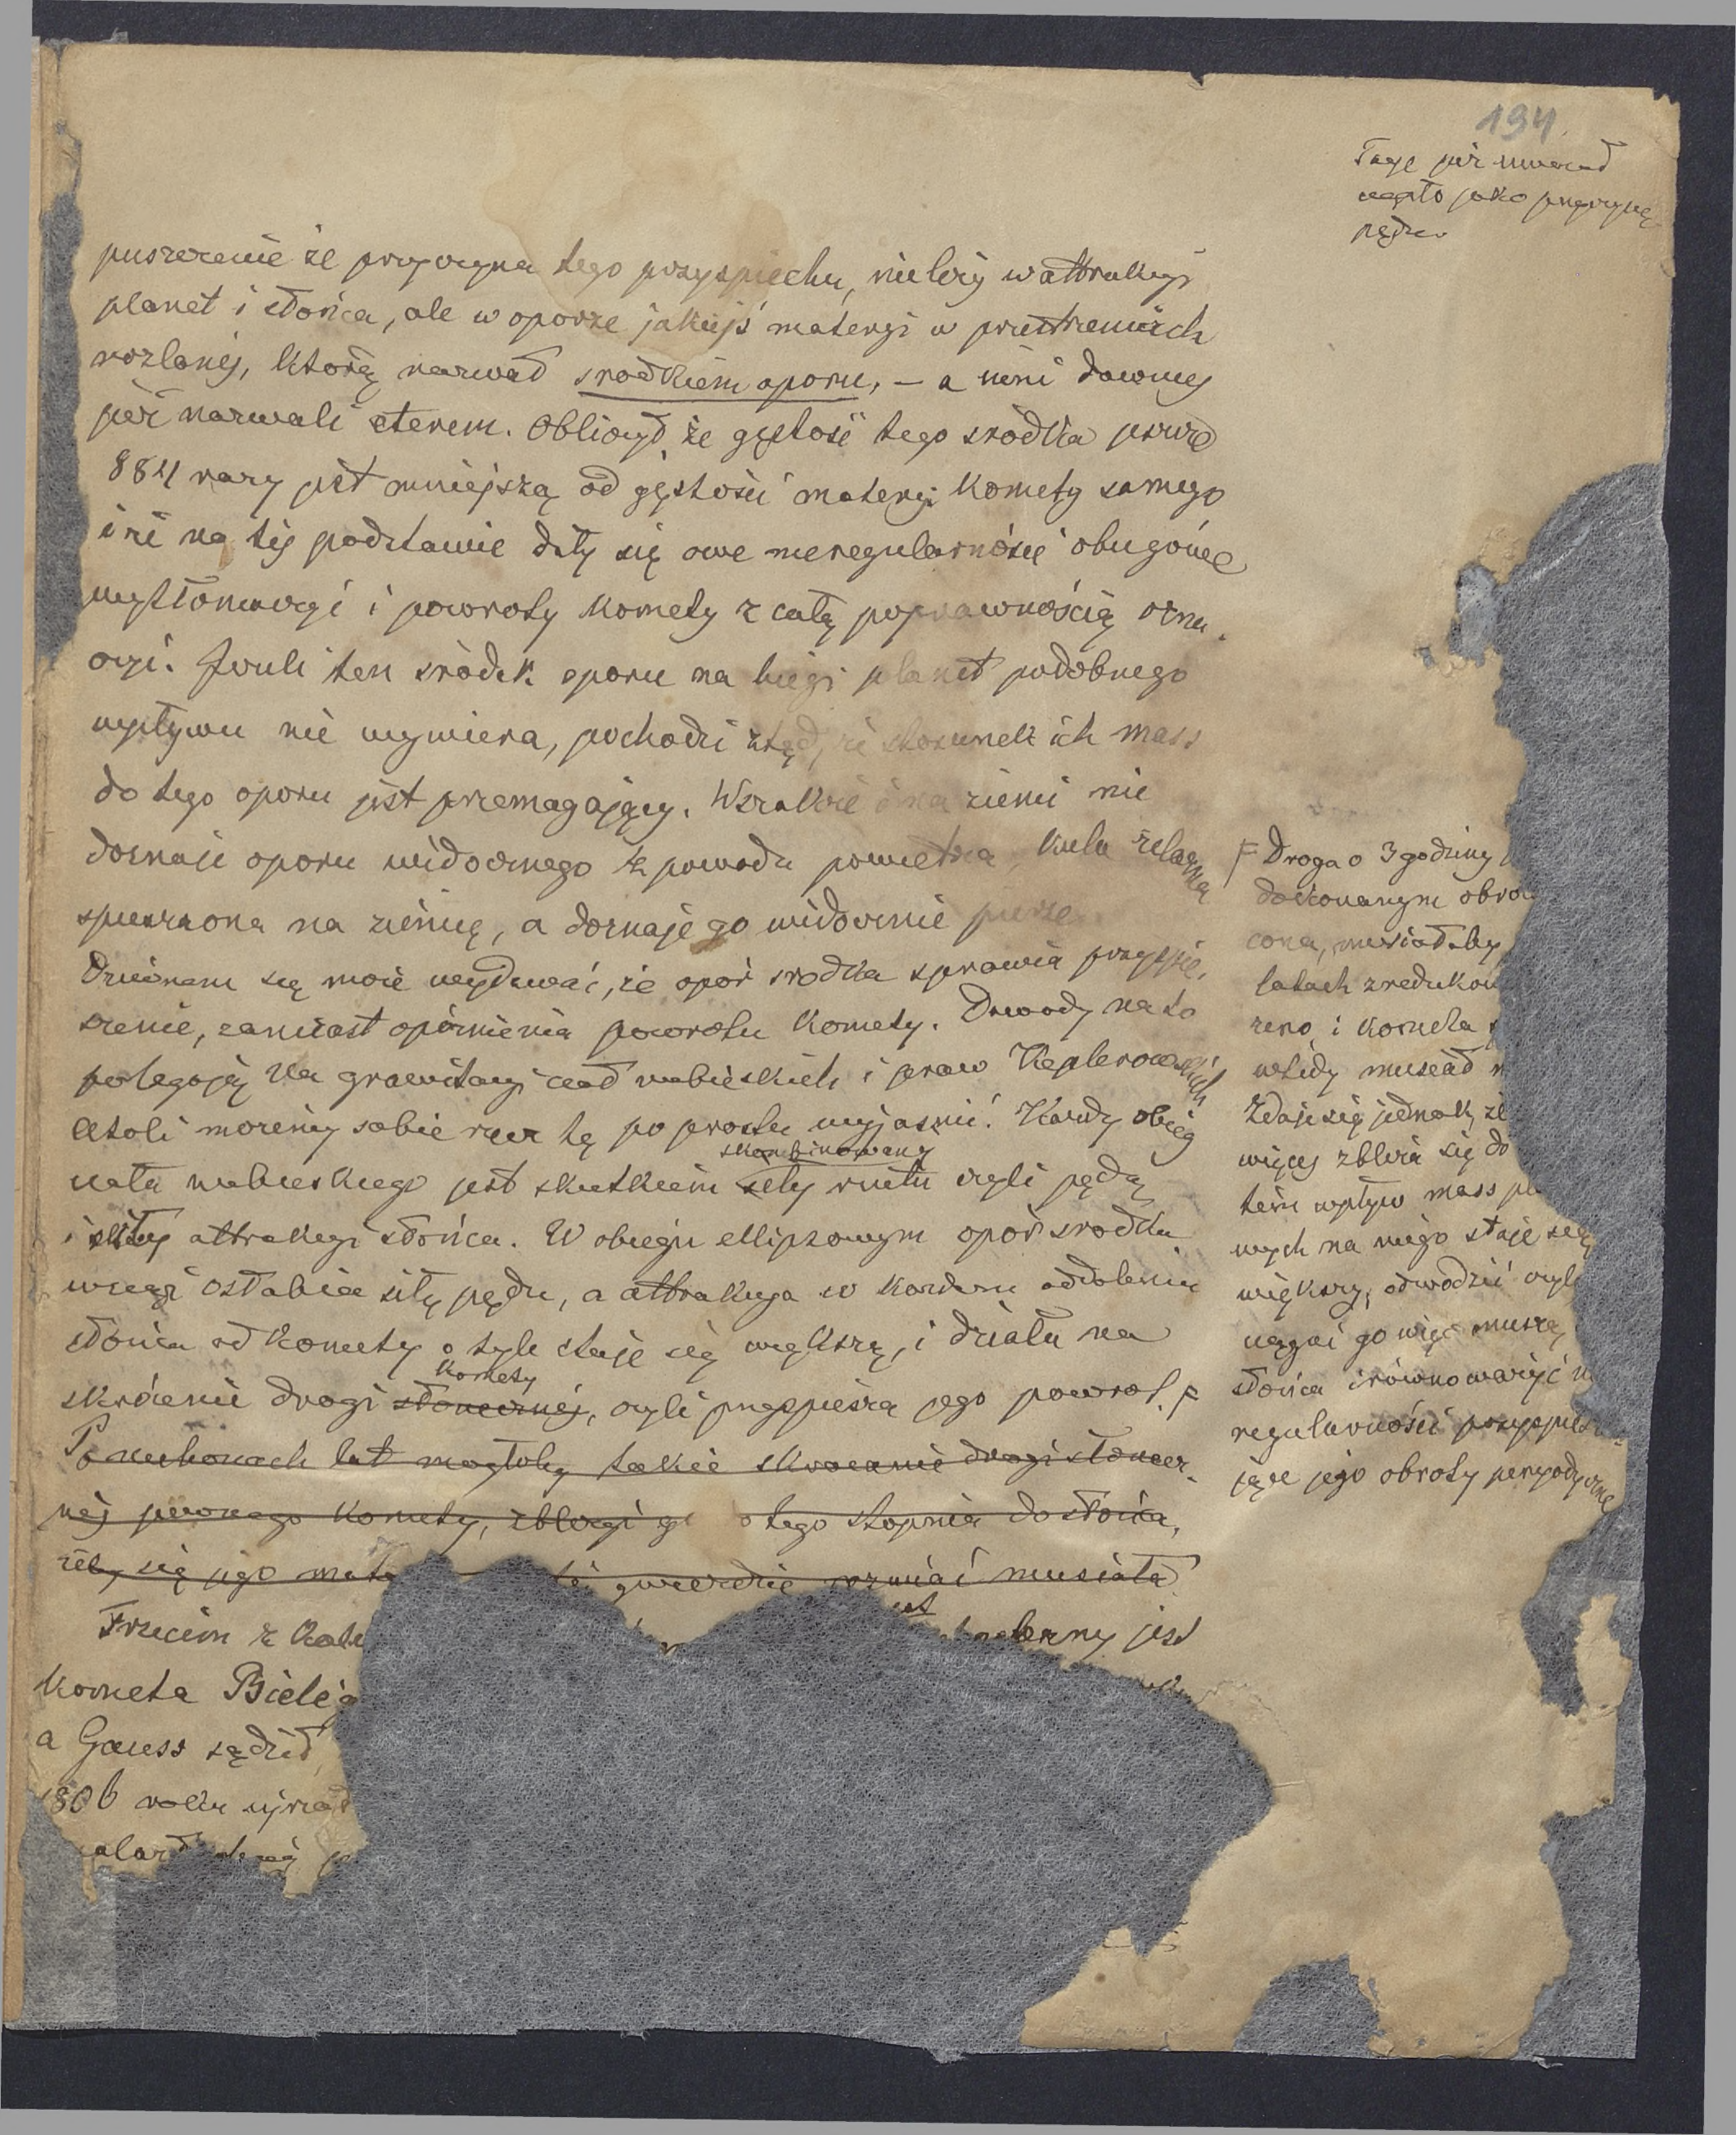 194
Tage już
jako przyczynę
pędu
puszczenie że przyczyna tego przyspiechu, nieleży w attrakcyi
planet i słońca, ale w oporze jakiejś materyi w przestrzeniach
rozlanéj, którą nazwał srodkiem oporu, – a inni dawniej
już nazwali eterem. Obliczył że gęstość tego srodka
884 razy jest mniejszą od gęstości materyi komety samego
i że na téj podstawie dały się owe nieregularności obiegowe
wytłomaczyć i powroty komety z całą poprawnością ozna-
czyć. Jeżeli ten srodek oporu na biegi planet podobnego
wpływu nie wywiera, pochodzi ztąd, że stosunek ich mass
do tego oporu jest przemagający. Wszakże i na ziemi nie
doznaje oporu widocznego z powodu powietrza, kula żelazna
spuszczona na ziemię, a doznaje go widocznie pierze.
Dziwnem się może wydawać, że opór srodka sprawia przyspie-
szenie, zamiast opóźnienia powrotu komety. Dowody na to
polegają na grawitacyi ciał niebieskich i praw Keplerowskich
Atoli możemy sobie rzecz tę po prostu wyjasnić. Każdy obieg
skombinowany
ciała niebieskiego jest skutkiem siły rzutu czyli pędu
i siły attrakcyi słońca. W obiegu ellipsowym opór srodka
wciąż osłabia siłę pędu, a attrakcya w każdem oddaleniu
słońca od komety o tyle staje się większą, i działa na
komety
skrócenie drogi słonecznéj, czyli przyspiesza jego powrot. F
Po milionach lat mogłoby takie skrócenie drogi słonecz-
néj pewnego komety, zbliżyć go do tego stopnia do słońca,
żeby się jego mate gwieździe rozwiać musiała
Trzecim z jest
kometa Biele
a Gauss sądził
1806 roku ujrzał
F Droga o 3 godziny
dokonanym obro
cona, musiałaby
latach zreduko
zero i kometa
wtedy musiał
Zdaje się jednak, że
więcej zbliża się do
tém wpływ mass pl
wych na niego staje się
większy, odwodzić czyli
ciągnąć go więc muszą
słońca i równoważyć n
regularności przyspiesza-
jące jego obroty peryodyczne